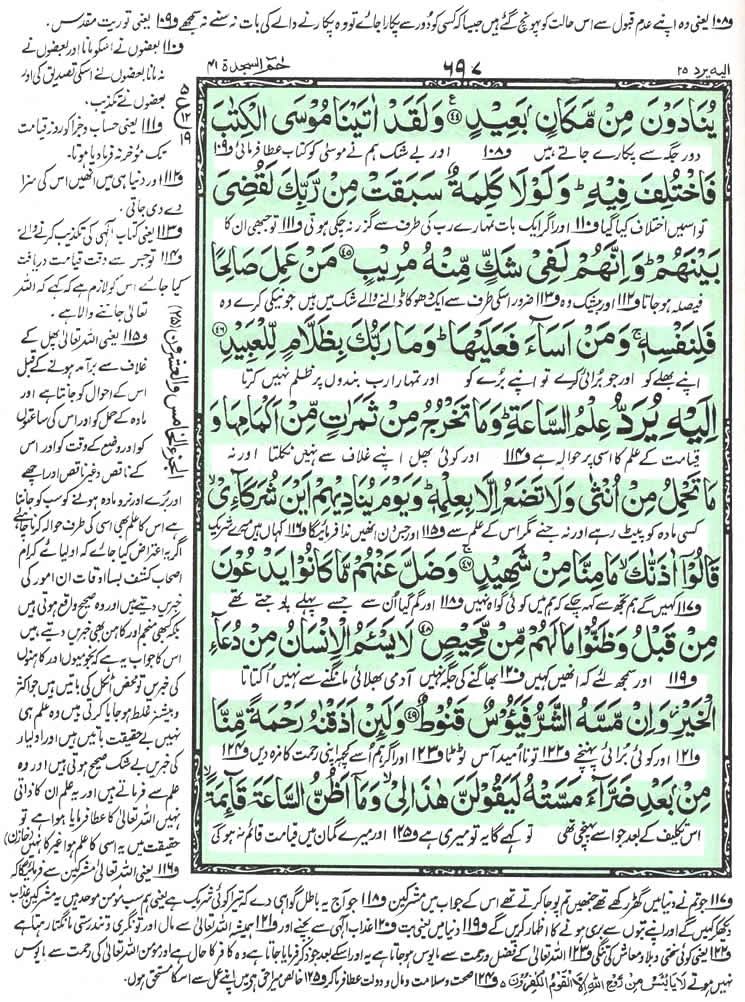 و۱۰۸ یعنی وہ اپنے عدم قبول سے اس حالت کو پہونچ گئے ہیں جیسا کہ کسی کو دُور سے پکارا جائے تو وہ پکارنے والے کی بات نہ سنے نہ سمجھے و۱۰۹ یعنی توریت مقدس۔
الیہ یرد ۲۵
۶۹۷
حٰمٓ السجدۃ ۴۱
یُنَادَوْنَ مِنْ مَّكَانٍۭ بَعِیْدٍ ۴۴ وَ لَقَدْ اٰتَیْنَا مُوْسَى الْكِتٰبَ
دور جگہ سے پکارے جاتے ہیں و۱۰۸ اور بے شک ہم نے موسٰی کو کتاب عطا فرمائی و۱۰۹
فَاخْتُلِفَ فِیْهِؕ وَ لَوْ لَا كَلِمَةٌ سَبَقَتْ مِنْ رَّبِّكَ لَقُضِیَ
تو اسمیں اختلاف کیا گیا و۱۱۰ اور اگر ایک بات تمہارے رب کی طرف سے گزر نہ چکی ہوتی و۱۱۱ تو جبھی ان کا
بَیْنَهُمْؕ وَ اِنَّهُمْ لَفِیْ شَكٍّ مِّنْهُ مُرِیْبٍ ۴۵ مَنْ عَمِلَ صَالِحًا
فیصلہ ہوجاتا و۱۱۲ اور بیشک وہ و۱۱۳ ضرور اسکی طرف سے ایک دھوکا ڈالنے والے شک میں ہیں جو نیکی کرے وہ
فَلِنَفْسِهٖۚ وَ مَنْ اَسَآءَ فَعَلَیْهَاؕ وَ مَا رَبُّكَ بِظَلَّامٍ لِّلْعَبِیْدِ ۴۶
اپنے بھلے کو اور جو برائی کرے تو اپنے بُرے کو اور تمہارا رب بندوں پر ظلم نہیں کرتا
اِلَیْهِ یُرَدُّ عِلْمُ السَّاعَةِؕ وَ مَا تَخْرُجُ مِنْ ثَمَرٰتٍ مِّنْ اَكْمَامِهَا وَ
قیامت کے علم کا اسی پر حوالہ ہے و۱۱۴ اور کوئی پھل اپنے غلاف سے نہیں نکلتا اور نہ
مَا تَحْمِلُ مِنْ اُنْثٰى وَ لَا تَضَعُ اِلَّا بِعِلْمِهٖؕ وَ یَوْمَ یُنَادِیْهِمْ اَیْنَ شُرَكَآءِیْۙ
کسی مادہ کو پیٹ رہے اور نہ جنے مگر اس کے علم سے و۱۱۵ اور جس دن انھیں ندا فرمائیگا و۱۱۶ کہاں ہیں میرے شریک
قَالُوْۤا اٰذَنّٰكَۙ مَا مِنَّا مِنْ شَهِیْدٍ ۴۷ وَ ضَلَّ عَنْهُمْ مَّا كَانُوْا یَدْعُوْنَ
و۱۱۷ کہیں گے ہم تجھ سے کہہ چکے کہ ہم میں کوئی گواہ نہیں و۱۱۸ اور گم گیا اُن سے جسے پہلے پوجتے تھے
مِنْ قَبْلُ وَ ظَنُّوْا مَا لَهُمْ مِّنْ مَّحِیْصٍ ۴۸ لَا یَسْــٴَـمُ الْاِنْسَانُ مِنْ دُعَآءِ
و۱۱۹ اور سمجھ لئے کہ انھیں کہیں و۱۲۰ بھاگنے کی جگہ نہیں آدمی بھلائی مانگنے سے نہیں اُکتاتا
الْخَیْرِ٘ وَ اِنْ مَّسَّهُ الشَّرُّ فَیَــٴُـوْسٌ قَنُوْطٌ ۴۹ وَ لَىٕنْ اَذَقْنٰهُ رَحْمَةً مِّنَّا
و۱۲۱ اور کوئی برائی پہنچے و۱۲۲ تو ناامید آس ٹوٹتا و۱۲۳ اور اگر ہم اُسے کچھ اپنی رحمت کا مزہ دیں و۱۲۴
مِنْۢ بَعْدِ ضَرَّآءَ مَسَّتْهُ لَیَقُوْلَنَّ هٰذَا لِیْۙ وَ مَاۤ اَظُنُّ السَّاعَةَ قَآىٕمَةًۙ
اس تکلیف کے بعد جو اسے پہنچی تھی تو کہے گا یہ تو میری ہے و۱۲۵ اور میرے گمان میں قیامت قائم نہ ہوگی
و۱۱۰ بعضوں نے اسکو مانا اور بعضوں نے
نہ مانا بعضوں نے اسکی تصدیق کی اور
بعضوں نے تکذیب۔
و۱۱۱ یعنی حساب و جزا کو روز قیامت
تک مؤخر نہ فرمادیا ہوتا۔
و۱۱۲ اور دنیا ہی میں انھیں اس کی سزا
دے دی جاتی۔
و۱۱۳ یعنی کتاب الٰہی کی تکذیب کرنے والے
و۱۱۴ تو جس سے وقت قیامت دریافت
کیا جائے اس کو لازم ہے کہ کہے کہ اللہ
تعالٰی جاننے والا ہے۔
و۱۱۵ یعنی اللہ تعالٰی پھل کے
غلاف سے برآمد ہونے کے قبل
اس کے احوال کو جانتا ہے اور
مادہ کے حمل کو اور اس کی ساعتوں
کو اور وضع کے وقت کو اور اس
کے ناقص و غیر ناقص اور اچھے
اور بُرے اور نر و مادہ ہونے کو سب کو جانتا
ہے اس کا علم بھی اسی کی طرف حوالہ کرنا چاہئے
اگر یہ اعتراض کیا جائے کہ اولیائے کرام
اصحاب کشف بسا اوقات ان امور کی
خبریں دیتے ہیں اور وہ صحیح واقع ہوتی ہیں
بلکہ کبھی منجم اور کاہن بھی خبریں دیتے ہیں
اس کا جواب یہ ہے کہ نجومیوں اور کاہنوں
کی خبریں تو محض اٹکل کی باتیں ہیں جو اکثر
و بیشتر غلط ہوجایا کرتی ہیں وہ علم ہی
نہیں بے حقیقت باتیں ہیں اور اولیاء
کی خبریں بے شک صحیح ہوتی ہیں اور وہ
علم سے فرماتے ہیں اور یہ علم ان کا ذاتی
نہیں اللہ تعالٰی کا عطا فرمایا ہوا ہے تو
حقیقت میں یہ اسی کا علم ہوا غیر کا نہیں (خازن)
و۱۱۶ یعنی اللہ تعالٰی مشرکین سے فرمائیگا کہ
الجزء الخامس والعشرون (۲۵)
۵
ع
۱۲
۱۹
و۱۱۷ جو تم نے دنیا میں گھڑ رکھے تھے جنھیں تم پوجا کرتے تھے اس کے جواب میں مشرکین و۱۱۸ جو آج یہ باطل گواہی دے کہ تیرا کوئی شریک ہے یعنی ہم سب مؤمن موحد ہیں یہ مشرکین عذاب
دیکھ کر کہیں گے اور اپنے بتوں سے بری ہونے کا اظہار کریں گے و۱۱۹ دنیا میں یعنی بت و۱۲۰ عذاب الٰہی سے بچنے اور و۱۲۱ ہمیشہ اللہ تعالٰی سے مال اور تونگری و تندرستی مانگتا رہتا ہے
و۱۲۲ یعنی کوئی سختی و بلا و معاش کی تنگی و۱۲۳ اللہ تعالٰی کے فضل و رحمت سے مایوس ہوجاتا ہے یہ اور اسکے بعد جو ذکر فرمایا جاتا ہے وہ کافر کا حال ہے اور مؤمن اللہ تعالٰی کی رحمت سے مایوس
نہیں ہوتے لَا یَایْـَٔسُ مِنْ رَّوْحِ اللّٰهِ اِلَّا الْقَوْمُ الْكٰفِرُوْنَ و۱۲۴ صحت و سلامت و مال و دولت عطا فرماکر و۱۲۵ خالص میرا حق ہے میں اپنے عمل سے اسکا مستحق ہوں۔